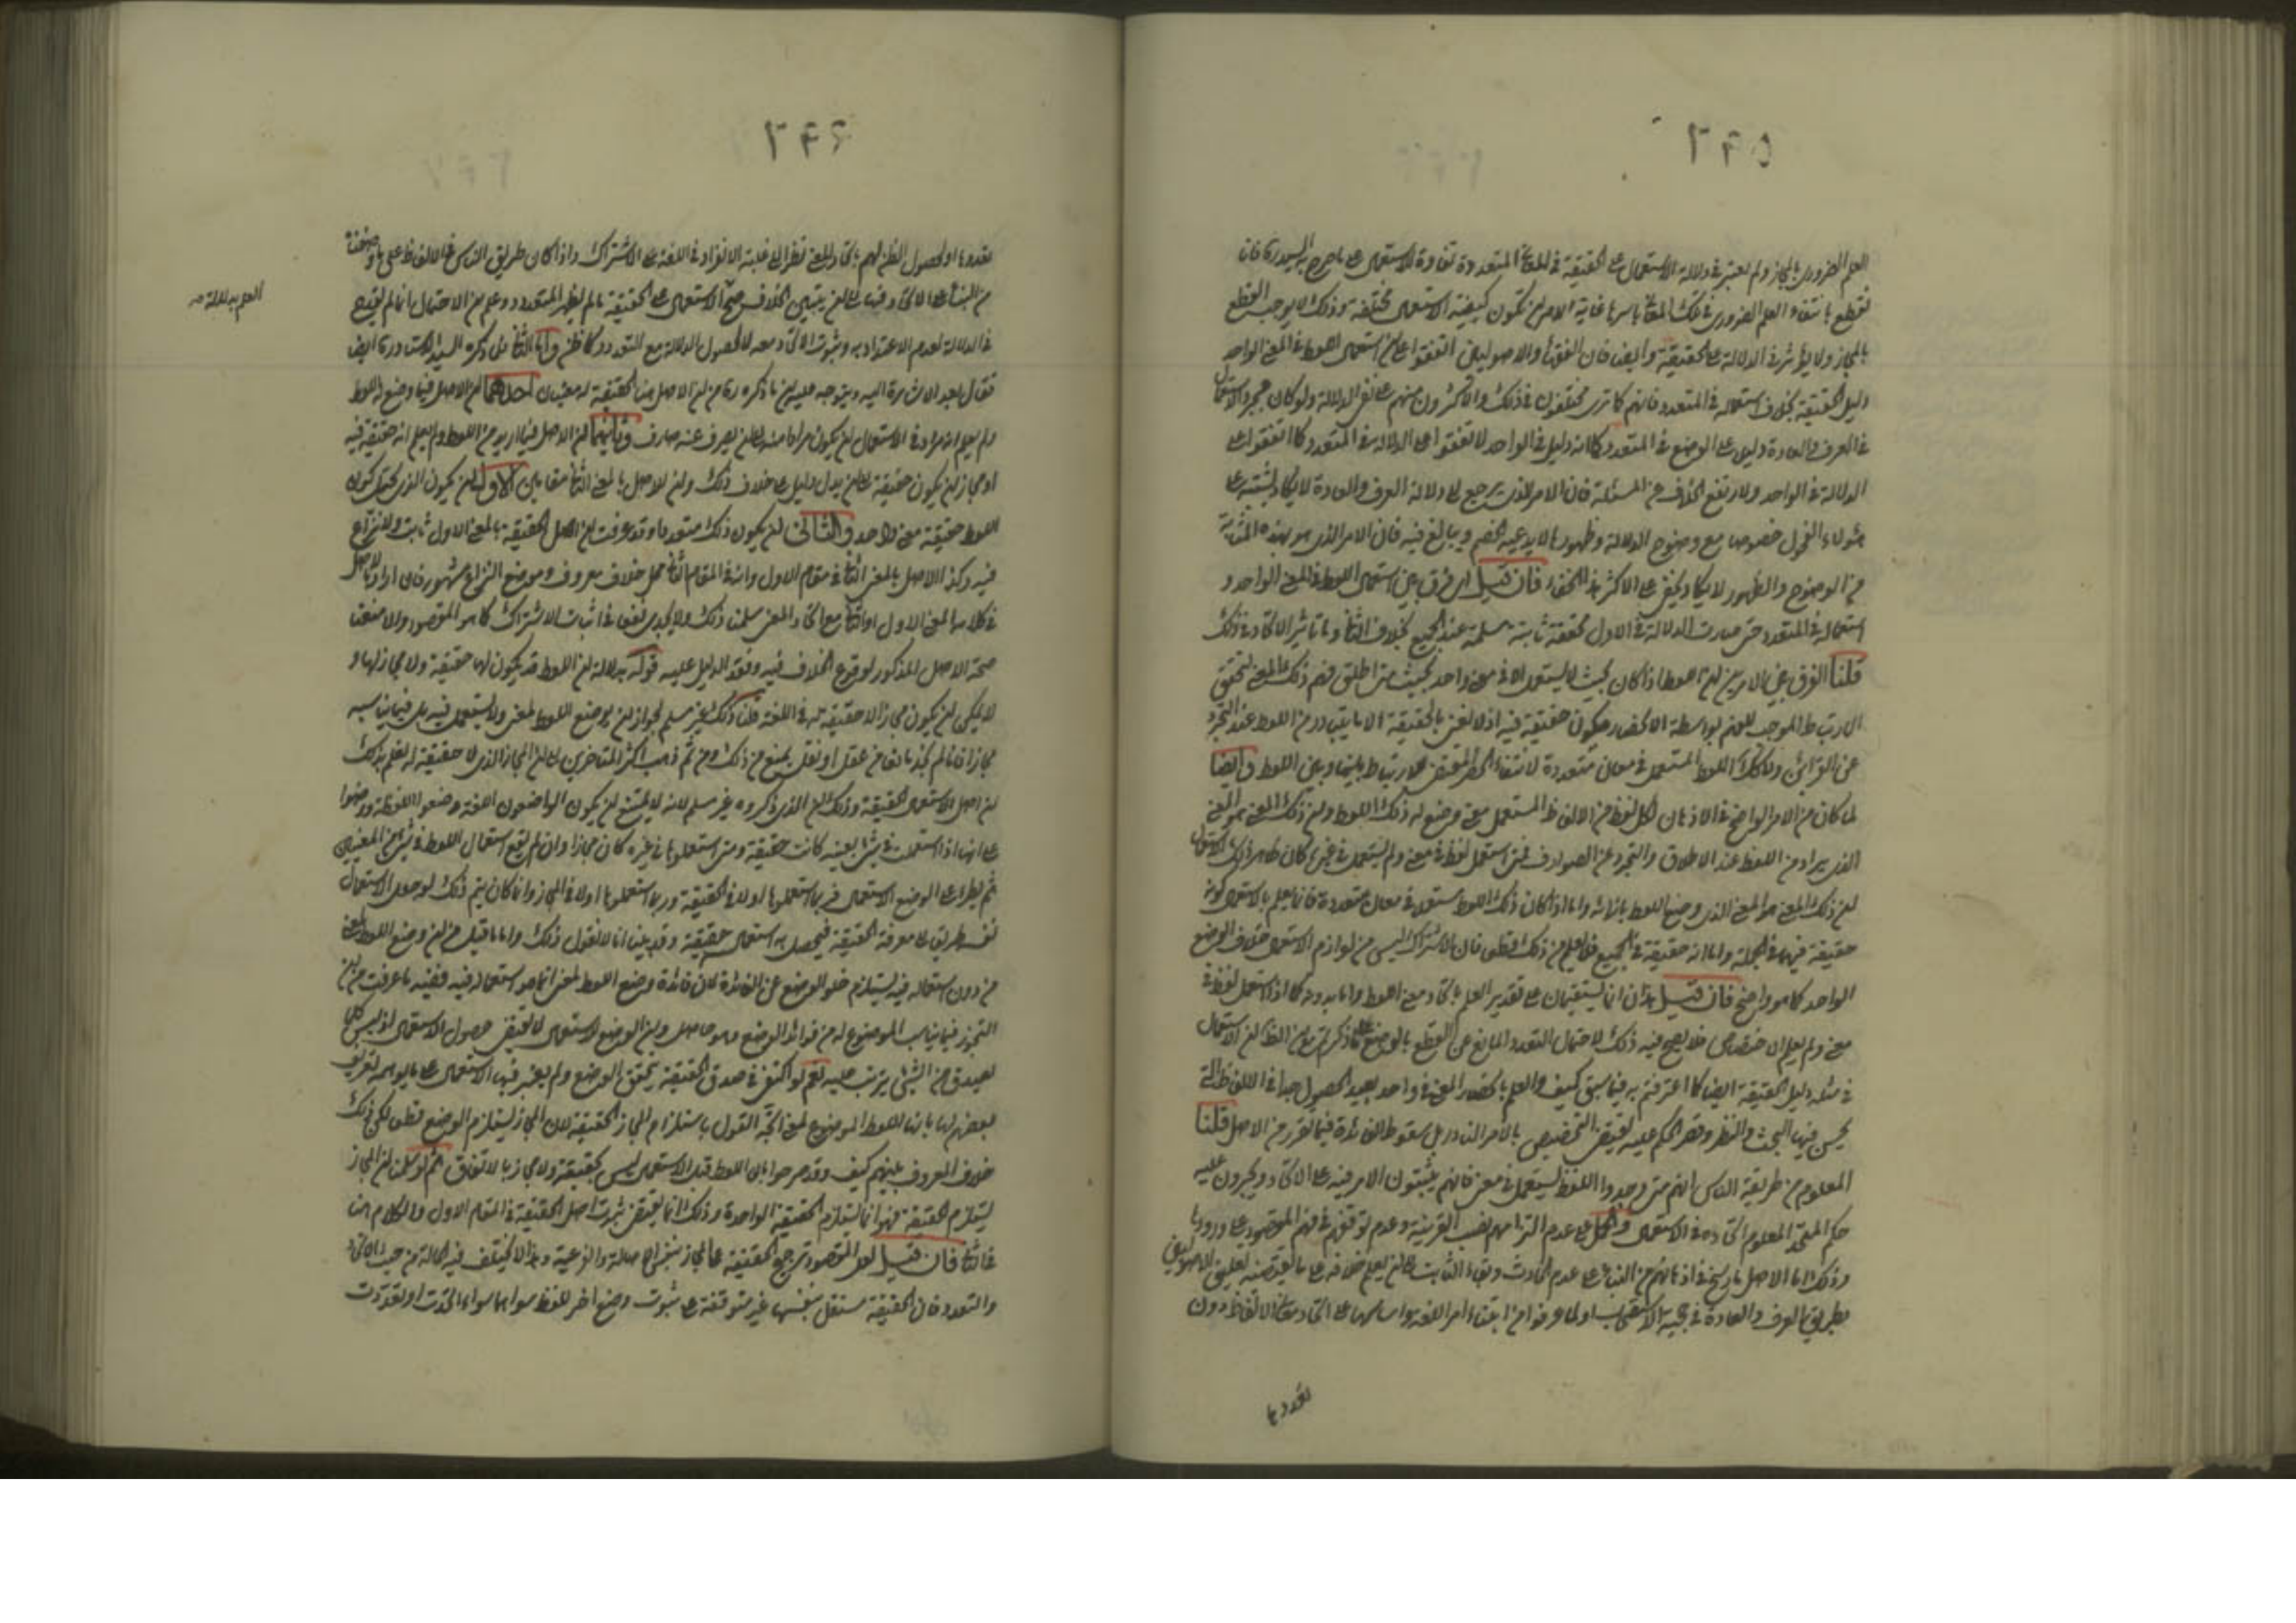 ٢٤٥
العلم الضرورى بالمجاز ولم يعتبر فى دلالة الاستعمال على الحقيقة فى المعانى المتعددة تفاوة الاستعمال على ما صرح به السيد ره فان
نقطع بانتفاء العلم الضرورى فى تلك المعانى باسرها غاية الامر ان تكون كيفية الاستعمال مختلفة وذلك لا يوجب القطع
بالمجاز ولا يؤثر فى الدلالة على الحقيقة وايضا فان الفقهاء والاصوليين اتفقوا على ان استعمال اللفظ فى المعنى الواحد
دليل الحقيقة بخلاف استعماله فى المتعدد فانهم كما ترى مختلفون فى ذلك والاكثرون منهم على نفى الدلالة ولو كان مجرد الاستعمال
فى العرف والعادة دليلا على الوضع فى المتعدد كما انه دليل فى الواحد لاتفقوا على الدلالة فى المتعدد كما اتفقوا على
الدلالة فى الواحد ولارتفع الخلاف من المسئلة فان الامر الذى يرجع الى دلالة العرف والعادة لا يكاد يشتبه على
هؤلاء الفحول خصوصا مع وضوح الدلالة وظهورها لا يدعيه الخصم ويبالغ فيه فان الامر الذى هو بهذه المثابة
من الوضوح والظهور لا يكاد يخفى على الاكثر هذا الخفاء فان قيل اى فرق بين استعمال اللفظ فى المعنى الواحد و
استعماله فى المتعدد حتى صارت الدلالة فى الاول محققة ثابتة مسلمة عند الجميع بخلاف الثانى وما تاثير الاتحاد فى ذلك
قلنا الفرق بين الامرين ان اللفظ اذا كان بحيث لا يستعمل الا فى معنى واحد بحيث متى اطلق فهم ذلك المعنى تحقق
الارتباط الموجب للفهم بواسطة الانحصار فيكون حقيقة فيه اذ لا نعنى بالحقيقة الا ما يتبادر من اللفظ عند التجرد
عن القرائن ولا كذلك اللفظ المستعمل فى معان متعددة لانتفاء الحصر المقتضى للارتباط بينها وبين اللفظ وايضا
لما كان من الامر الواضح فى الاذهان ان لكل لفظ من الالفاظ المستعمل معنى وضع له ذلك اللفظ وان ذلك المعنى هو المعنى
الذى يراد من اللفظ عند الاطلاق والتجرد عن الصوارف فمتى استعمل لفظ فى معنى ولم يستعمل فى غيره كان ظاهر ذلك الاستعمال
ان ذلك المعنى هو المعنى الذى وضع اللفظ بازائه واما اذا كان ذلك اللفظ مستعملا فى معان متعددة فانما يعلم بالاستعمال كونه
حقيقة فيها فى الجملة واما انه حقيقة فى الجميع فلا يعلم من ذلك قطعا فان الاشتراك ليس من لوازم الاستعمال بخلاف الوضع
الواحد كما هو واضح فان قيل هذان انما يستقيمان على تقدير العلم باتحاد معنى اللفظ واما بدونه كما اذا استعمل لفظ فى
معنى ولم يعلم الاختصاص فلا يصح فيه ذلك لاحتمال التعدد المانع عن القطع بالوضع على ما ذكرتم مع ان الظاهر ان الاستعمال
فى مثله دليل الحقيقة ايضا كما اعترفتم به فيما سبق كيف والعلم بانحصار المعنى فى واحد بعيد الحصول جدا فى الالفاظ التى
يحسن فيها البحث والنظر وقصر الحكم عليه يقتضى التخصيص بالامر النادر بل سقوط الفائدة فيما تقرر من الاصل قلنا
المعلوم من طريقة الناس انهم متى وجدوا اللفظ يستعمل فى معنى فانهم يثبتون الامر فيه على الاتحاد ويجرون عليه
حكم المتحد المعلوم اتحاده فى الاستعمال والحمل على عدم التزامهم نصب القرينة وعدم توقفهم فى فهم المقصود على ورودها
وذلك اما لاصل راسخ فى اذهانهم من البناء على عدم الحادث وبقاء الثابت الى ان يعلم خلافه على ما يقتضيه تعليق الاصوليين
بطريق العرف والعادة فى حجية الاستصحاب او لما عرفوا من ابتناء امر اللغة واساسها على اتحاد معانى الالفاظ دون
تعددها
٢٤٦
تعددها او لحصول الظن لهم باتحاد المعنى نظرا الى غلبة الانفراد فى اللغة على الاشتراك واذا كان طريق الناس فى الالفاظ على ما وصفنا
من البناء على الاتحاد فيها الى ان يتبين الخلاف صح الاستعمال على الحقيقة ما لم يظهر المتعدد وعلم ان الاحتمال انما لم يقدح
فى الدلالة لعدم الاعتداد به وثبوت الاتحاد معه لا لحصول الدلالة مع التعدد كما ظن واما الثانى بل ذكره السيد الاستاد ره ايض
فقال بعد الاشارة اليه ويتوجه عليه ان ما ذكره ره من ان الاصل هنا الحقيقة له معنيان احدهما ان الاصل فيما وضع له اللفظ
ولم يعلم انه مراد فى الاستعمال ان يكون مرادا منه الى ان يصرف عنه صارف وثانيهما ان الاصل فيما اريد من اللفظ ولم يعلم انه حقيقة فيه
او مجاز ان يكون حقيقة الى ان يدل دليل على خلاف ذلك وان للاصل بالمعنى الثانى مقامين الاول ان يكون الذى يحتمل كون
اللفظ حقيقة معنى واحد والثانى ان يكون ذلك متعددا وقد عرفت ان اصل الحقيقة بالمعنى الاول ثابت ولا نزاع
فيه وكذا الاصل بالمعنى الثانى فى مقام الاول وانه فى المقام الثانى محل خلاف معروف وموضع النزاع مشهور فان اراد بالاصل
فى كلامه المعنى الاول او الثانى مع اتحاد المعنى سلمنا ذلك ولا يجدى نفعا فى اثبات الاشتراك كما هو المقصود والا منعنا
صحة الاصل المذكور لوقوع الخلاف فيه وفقد الدليل عليه قوله بدلالة ان اللفظ قد يكون لها حقيقة ولا مجاز لها و
لا يمكن ان يكون مجازا لا حقيقة له فى اللغة قلنا ذلك غير مسلم لجواز ان يوضع اللفظ لمعنى ولا يستعمل فيه بل فيما يناسبه
مجازا فانا لم نجد مانعا من عقل او نقل يمنع من ذلك ومن ثم ذهب اكثر المتاخرين الى ان المجاز الذى لا حقيقة له نعلم بذلك
ان اصل الاستعمال الحقيقة وذلك ان الذى ذكروه غير مسلم لانه لا يمتنع ان يكون الواضعون للغة وضعوا اللفظة ووضعوا
على انها اذا استعملت فى شئ بعينه كانت حقيقة ومتى استعملوها فى غيره كان مجازا وان لم يقع استعمال اللفظ فى شئ من المعنيين
ثم يطرأ على الوضع الاستعمال فربما استعملوها اولا فى الحقيقة وربما استعملوها اولا فى المجاز وانما كان يتم ذلك لو جعل الاستعمال
نفسه طريقا الى معرفة الحقيقة فيجعل به استعمال حقيقة وقد بينا انا لا نقول ذلك واما ما قيل من ان وضع اللفظ لمعنى
من دون استعماله فيه يستلزم خلو الوضع عن الفائدة لان فائدة وضع اللفظ لمعنى انما هو استعماله فيه ففيه ما عرفت من ان
التجوز فيما يناسب الموضوع له من فوائد الوضع وهو حاصل وان الوضع للاستعمال لا يقتضى حصول الاستعمال اذ ليس كلما
يصدق من الشئ يترتب عليه نعم لو اكتفى فى صدق الحقيقة بتحقق الوضع ولم يعتبر فيها الاستعمال على ما يوهمه تعريف
بعضهم لها بانها اللفظ الموضوع لمعنى اتجه القول باستلزام المجاز الحقيقة لان المجاز يستلزم الوضع قطعا لكن ذلك
خلاف المعروف بينهم كيف وقد صرحوا بان اللفظ قبل الاستعمال ليس بحقيقة ولا مجاز بالاتفاق ثم لو سلمنا ان المجاز
يستلزم الحقيقة فهو انما يستلزم الحقيقة الواحدة وذلك انما يقتضى ثبوت اصل الحقيقة فى المقام الاول والكلام هنا
فى الثانى فان قيل لعل المقصود ترجيح الحقيقة على المجاز بمعنى الاصالة والفرعية وهذا لا يختلف فيه الحالة من حيث الاتحاد
والتعدد فان الحقيقة مستقل بنفسها غير متوقفة على ثبوت وضع اخر للفظ سواها سواء اتحدت او تعددت